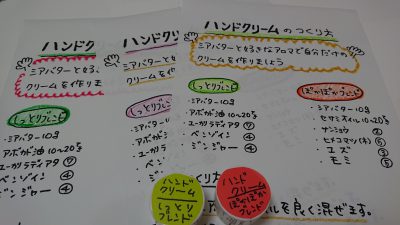 ハンドクリームのつくり方
シアバターと好きなアロマで自分だけの
クリームを作りましょう
しっとりブレンド
・シアバター 10g
アボガ油 10〜20g
ユーカリラディアタ ⑦
ベンゾイン ④
ジンジャー ④
ぽかぽかブレンド
・シアバター 10g
セサミオイル 10〜20g
サンショウ
ヒメコマツ(木) ⑤
ユズ
モミ ⑤
ルを良く混ぜます。
ハンドク
シアバターと好
クリームを作りま
しっとりブレンド
・シアバター 10g
アボガ油 10〜20g
ユーカリラディアタ ⑦
ベンゾイン ④
ジンジャー ④
ハンドクリ
シアバター
クリームを作
しっとりブレンド
・シアバター
アボガ油
ユーカリラ
ベンゾ
ジンジ
ハンド
クリーム
しっとり
ブレンド
ハンド
クリーム
ぽかぽか
ブレンド